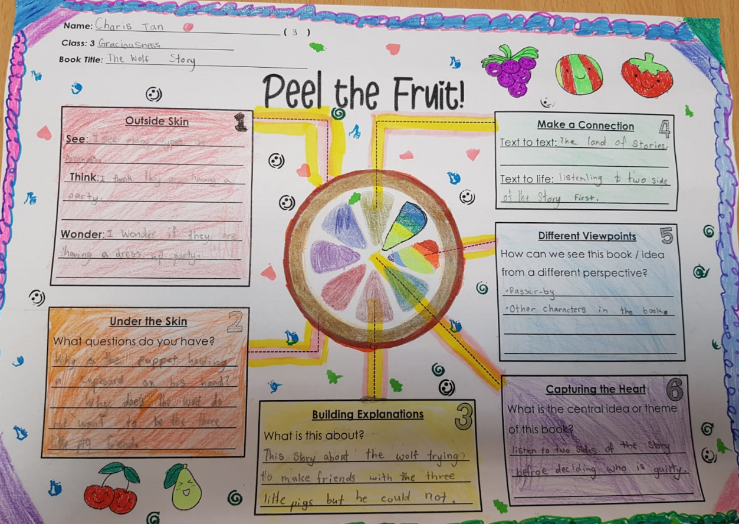 Name: Charis Tan ( 3 )
Class: 3 Graciousness
Book Title: The Wolf Story
Peel the Fruit!
Outside Skin
1
See: I see many types
Think: I think they are having a
party.
Wonder: I wonder if they are
having a dress up party.
Under the Skin
2
What questions do you have?
Why is the puppet holding
a cupboard on his hand?
Why does the wolf do
not want to be the three
pig
Building Explanations
3
What is this about?
This story about the wolf trying
to make friends with the three
little pigs but he could not.
Make a Connection
4
Text to text: The land of stories
Text to life: listenling t two side
of the story first.
Different Viewpoints
5
How can we see this book / idea
from a different perspective?
•Passer-by
•Other characters in the book
Capturing the Heart
6
What is the central idea or theme
of this book?
listen to two sides of the story
befroe deciding who is guilty.